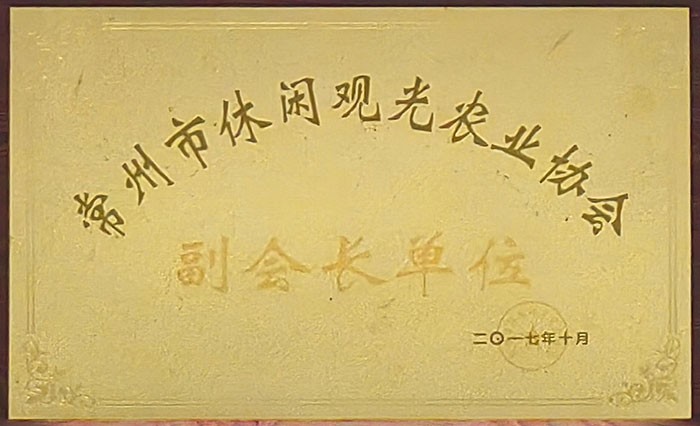 常州市休闲观光农业协会
副会长单位
二〇一七年十月